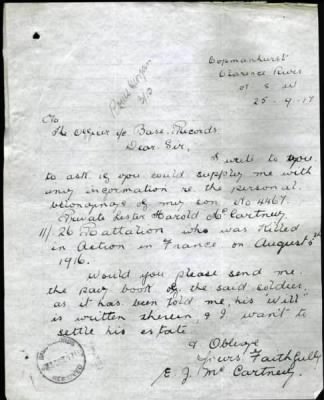 Copmanhurst
Clarence River
N S W
25-9-17
To
The Officer i/c Base Records
Dear Sir,
I write to you
to ask if you could supply me with
any information re the personal
belongings of my son, No 4467.
Private Lester Harold McCartney
11/26 Battalion who was killed
in Action in France on August 5th
1916.
Would you please send me
the pay book of the said soldier,
as it has been told me, his "Will"
is written therein, & I want to
settle his estate
& Oblige
Yours Faithfully
E. J. McCartney.
RECEIVED